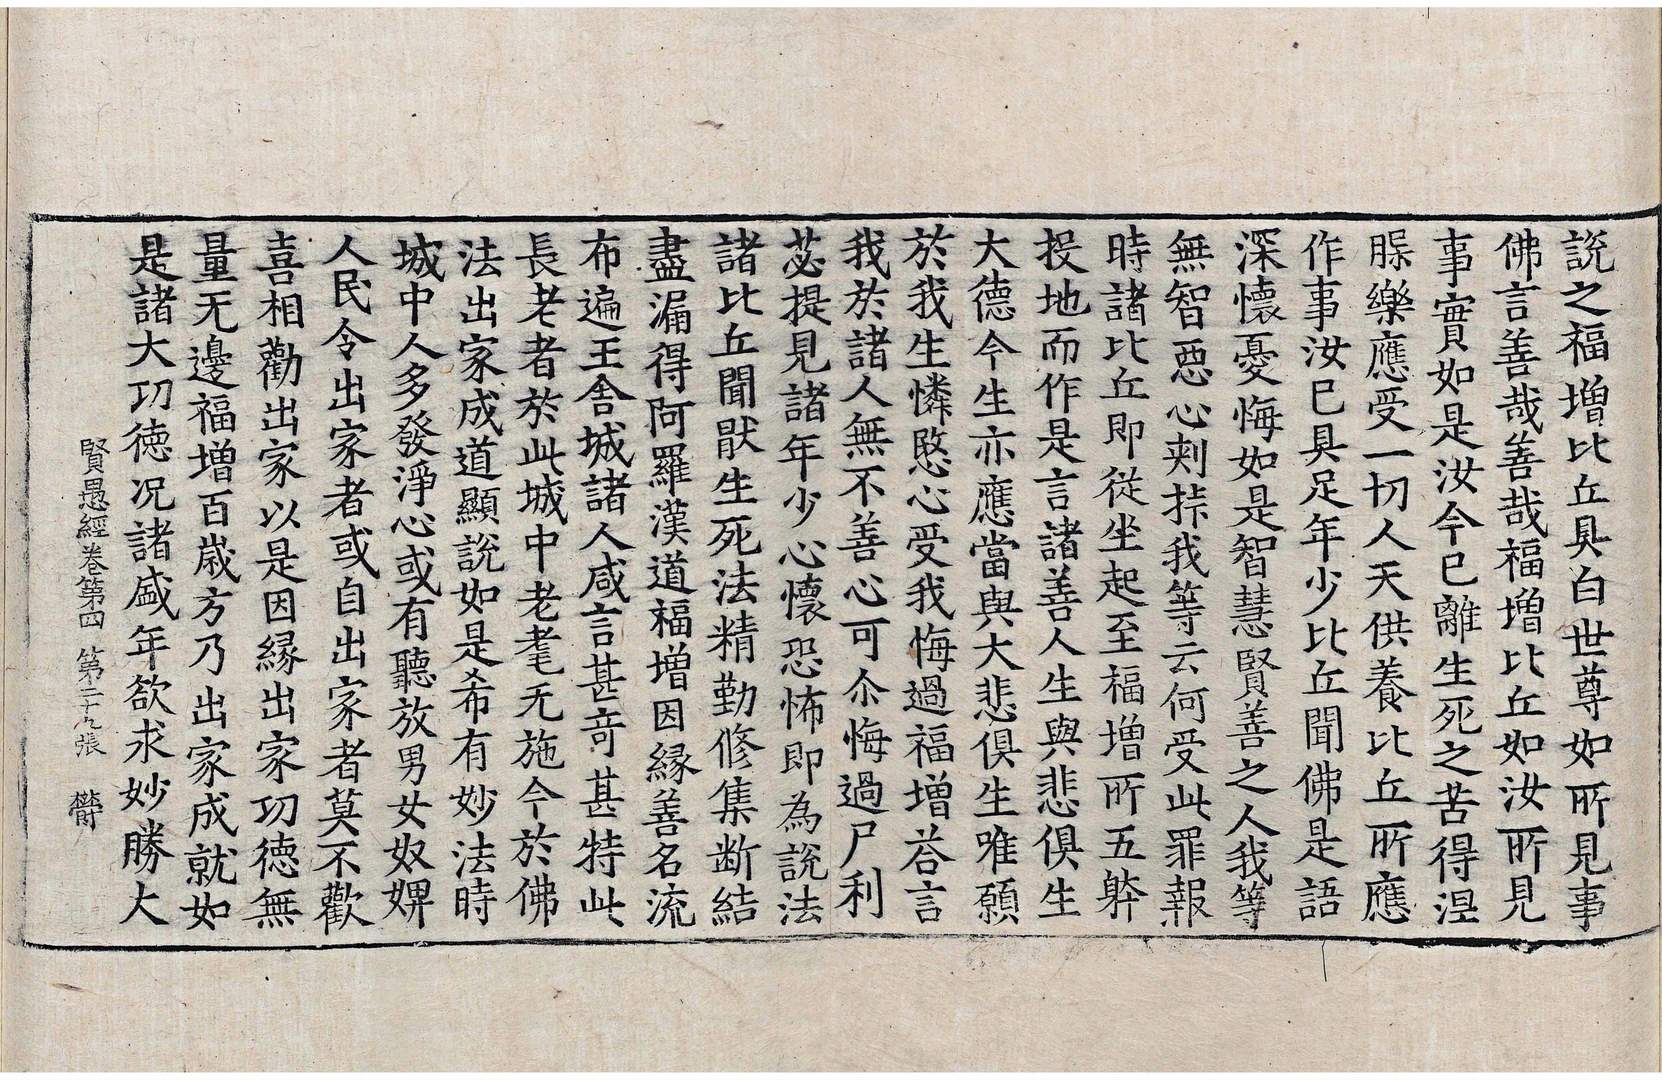 說之福增比丘具白世尊如所見事
佛言善哉善哉福增比丘如汝所見
事實如是汝今已離生死之苦得涅
睬樂應受一切人天供養比丘所應
作事汝已具足年少比丘聞佛是語
深懷憂悔如是智慧賢善之人我等
無智惡心刾㨒我等云何受此罪報
時諸比丘即從坐起至福增所五躰
投地而作是言諸善人生與悲俱生
大德今生亦應當與大悲俱生唯願
於我生憐愍心受我悔過福增荅言
我於諸人無不善心可尒悔過尸利
苾提見諸年少心懷恐怖即為說法
諸比丘聞猒生死法精勤修集断結
盡漏得阿羅漢道福增因緣善名流
布遍王舍城諸人咸言甚竒甚特此
長老者於此城中老耄无施今於佛
法出家成道顯說如是希有妙法時
城中人多發淨心或有聽放男女奴婢
人民令出家者或自出家者莫不歡
喜相勸出家以是因緣出家功德無
量无邊福增百歲方乃出家成就如
是諸大功德况諸盛年欲求妙勝大
賢愚經卷第四 第二十九張 欎